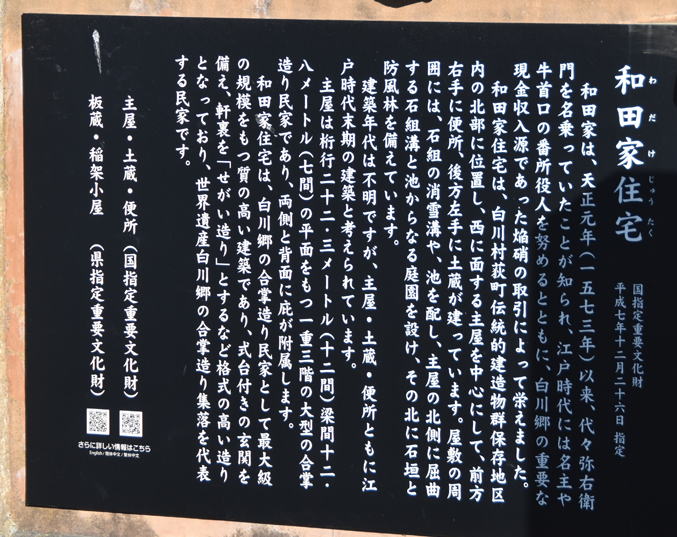 和田家住宅
わだけじゅうたく
国指定重要文化財
平成七年十二月二十六日 指定
和田家は、天正元年（一五七三年）以来、代々弥右衛
門を名乗っていたことが知られ、江戸時代には名主や
牛首口の番所役人を努めるとともに、白川郷の重要な
現金収入源であった焔硝の取引によって栄えました。
和田家住宅は、白川村荻町伝統的建造物群保存地区
内の北部に位置し、西に面する主屋を中心にして、前方
右手に便所、後方左手に土蔵が建っています。屋敷の周
囲には、石組の消雪溝や、池を配し、主屋の北側に屈曲
する石組溝と池からなる庭園を設け、その北に石垣と
防風林を備えています。
建築年代は不明ですが、主屋・土蔵・便所ともに江
戸時代末期の建築と考えられています。
主屋は桁行二十二・三メートル（十二間）梁間十二・
八メートル（七間）の平面をもつ一重三階の大型の合掌
造り民家であり、両側と背面に庇が附属します。
和田家住宅は、白川郷の合掌造り民家として最大級
の規模をもつ質の高い建築であり、式台付きの玄関を
備え、軒裏を「せがい造り」とするなど格式の高い造り
となっており、世界遺産白川郷の合掌造り集落を代表
する民家です。
主屋・土蔵・便所（国指定重要文化財）
板蔵・稲架小屋（県指定重要文化財）
さらに詳しい情報はこちら
English/简体中文/繁体中文